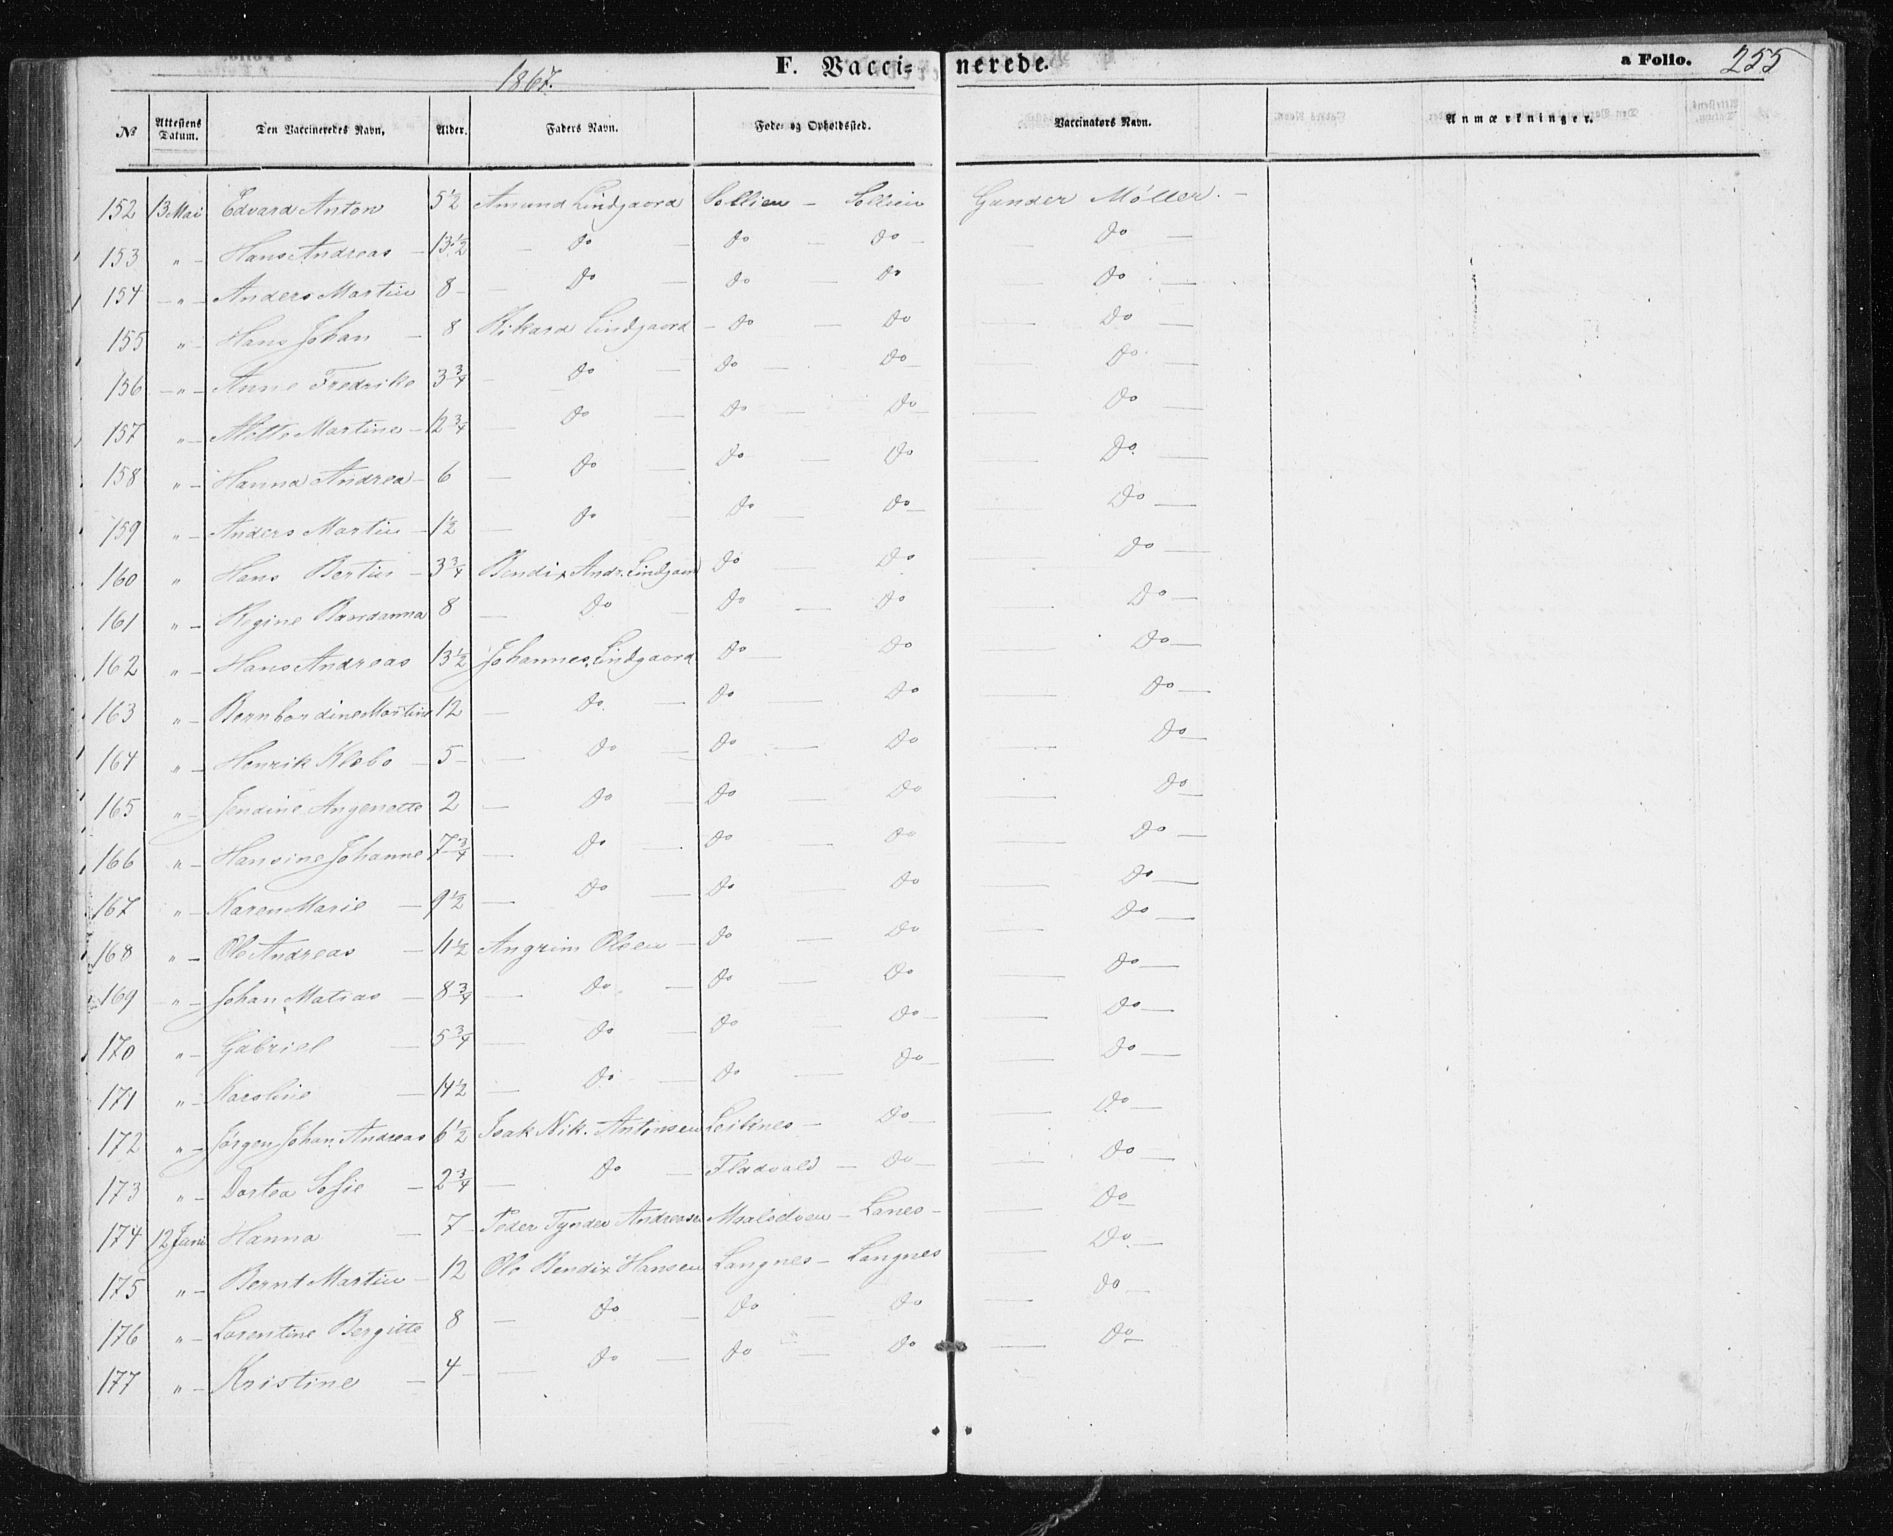 1867.
F. Vaccinerede.
a Folio. 255
№ Attestens Datum. Den Vaccineredes Navn, Alder. Faders Navn. Føde- og Opholdssted. Vaccinators Navn. Anmærkninger.
152 13 Mai Edvard Anton 5½ Amund Lindgaard Sollien - Sollien Gunder Møller. -
153 " - Hans Andreas - 13½ - do - do - do - - do -
154 - " - Anders Martin 8 - - do - do - do - do -
155 " - Hans Johan - 8 Rikard Lindgaard - do - do - do -
156 - " - Anne Fredrike 3¾ - do - do - do - - do -
157 " - Mette Martine - 12¾ - do - do - do - - do -
158 " - Hanna Andrea - 6 - do - do - do - do -
159 " - Anders Martin - 1½ - do do - do - - do -
160 " Hans Bertin - 3¾ Bendix Andr. Lindgaard do do - do -
161 " - Regine 8 - do - do - do - do -
162 " - Hans Andreas 13½ Johannes Lindgaard do - do - do -
163 " - Bernhardine Martine 12 - do. - do - do - do -
164 " - Henrik Klebo - 5 - - do - do - do - do -
165 " - Jendine Angenette 2 - do - do - do - do -
166 " - Hansine Johanne 7¾ - do - do - do - do -
167 " - Karen Marie - 9½ - do - do - do - do -
168 " - Ole Andreas - 11½ Angrim Olsen - do - do - do -
169 - " - Johan Matias - 8¾ - do - do - do - do -
170 " - Gabriel - 5¾ - do - do do - - do -
171 " - Karoline - 14½ - do - do - do - - do -
172 " - Jørgen Johan Andreas 6½ Isak Nik. Antonsen Leiknes - do - - do -
173 " - Dortea Sofie - 2¾ - do - Fladvald - do - - do -
174 12 Juni Hanna - 7 - Peder Tynder Andreasen Maalsdven - Lanes - - do -
175 " - Bernt Martin - 12 Ole Bendix Hansen Langnes - Langnes - do. -
176 " - Lorentine Bergitte 8 - do - do - do - do -
177 " - Kristine - 4 - - do - do - do - do -